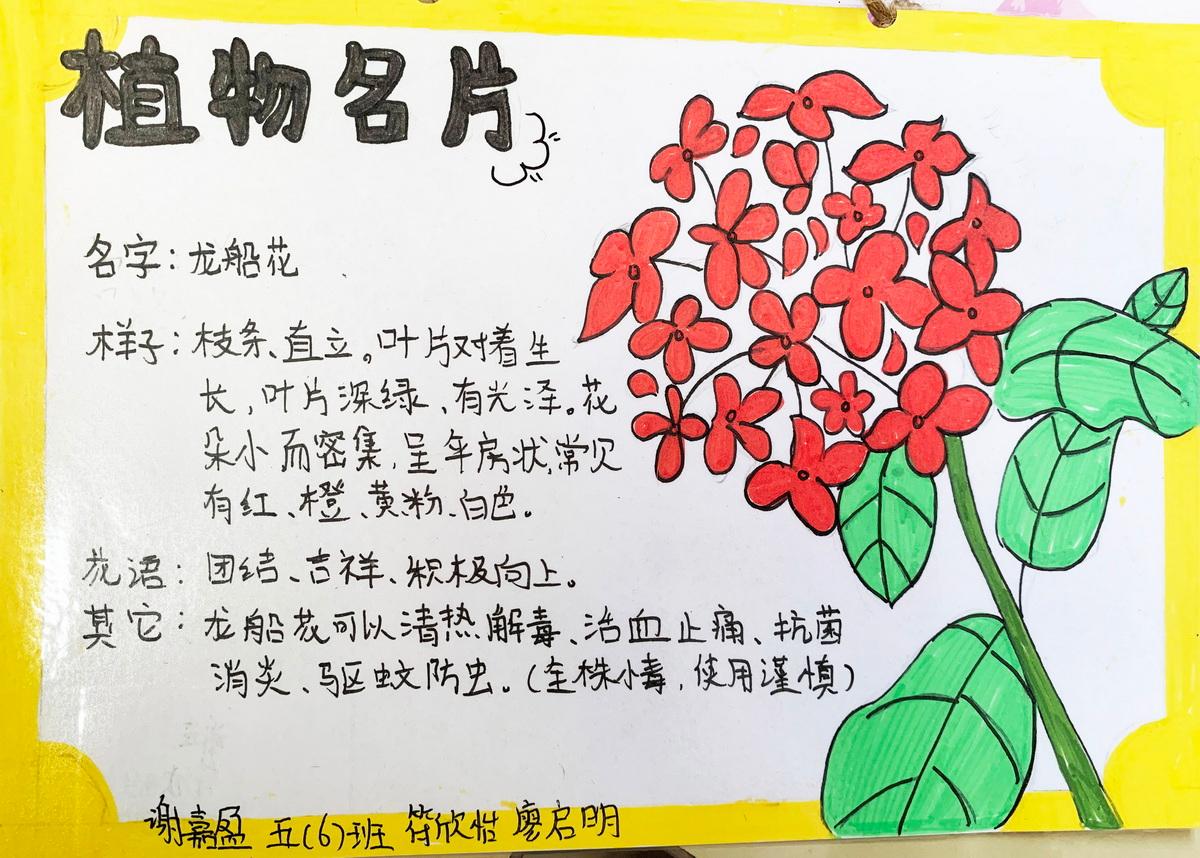 植物名片
名字：龙船花
样子：枝条、直立。叶片对着生
长，叶片深绿、有光泽。花
朵小而密集，呈伞房状，常见
有红、橙、黄粉、白色。
花语：团结、吉祥、积极向上。
其它：龙船花可以清热解毒、治血止痛、抗菌
消炎、驱蚊防虫。（全株小毒，使用谨慎）
谢嘉盈 五(6)班 符欣怡 廖启明